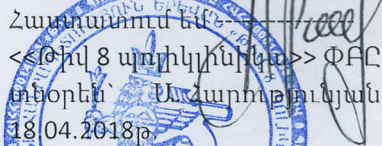 Հաստատում եմ -------------
<<Թիվ 8 պոլիկլինիկա>> ՓԲԸ
տնօրեն՝ Ա. Հարությունյան
18.04.2018թ.